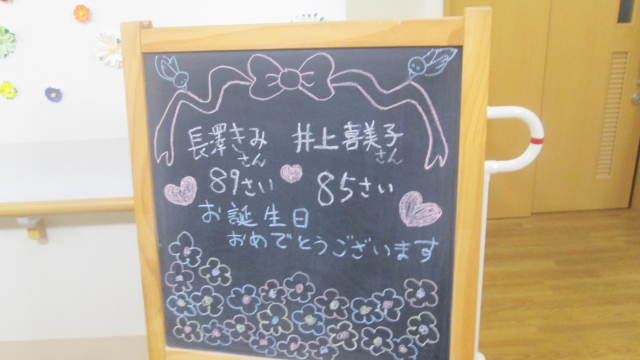 長澤きみさん 井上喜美子さん
89さい 85さい
お誕生日
おめでとうございます